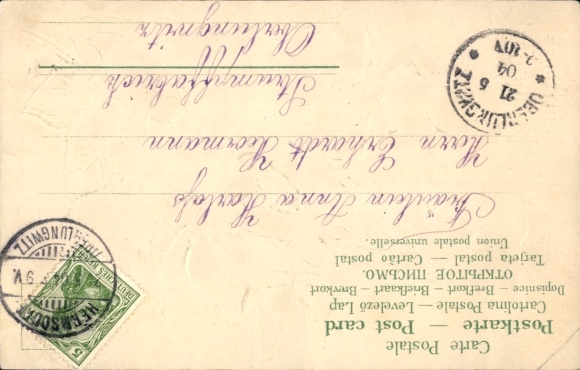 Carte Postale
Postkarte — Post card
Cartolina Postale — Levelező Lap
Dopisnice — Brefkort — Briefkaart — Brevkort
ОТКРЫТОЕ ПИСЬМО.
Tarjeta postal — Cartão postal
Union postale universelle.
5
DEUTSCHES REICH
HERMSDORF
OBERLUNGWITZ
Fräulein Anna
Herrn Erhardt
Strumpffabrick
Oberlungwitz
OBERLUNGWITZ
21 5
04